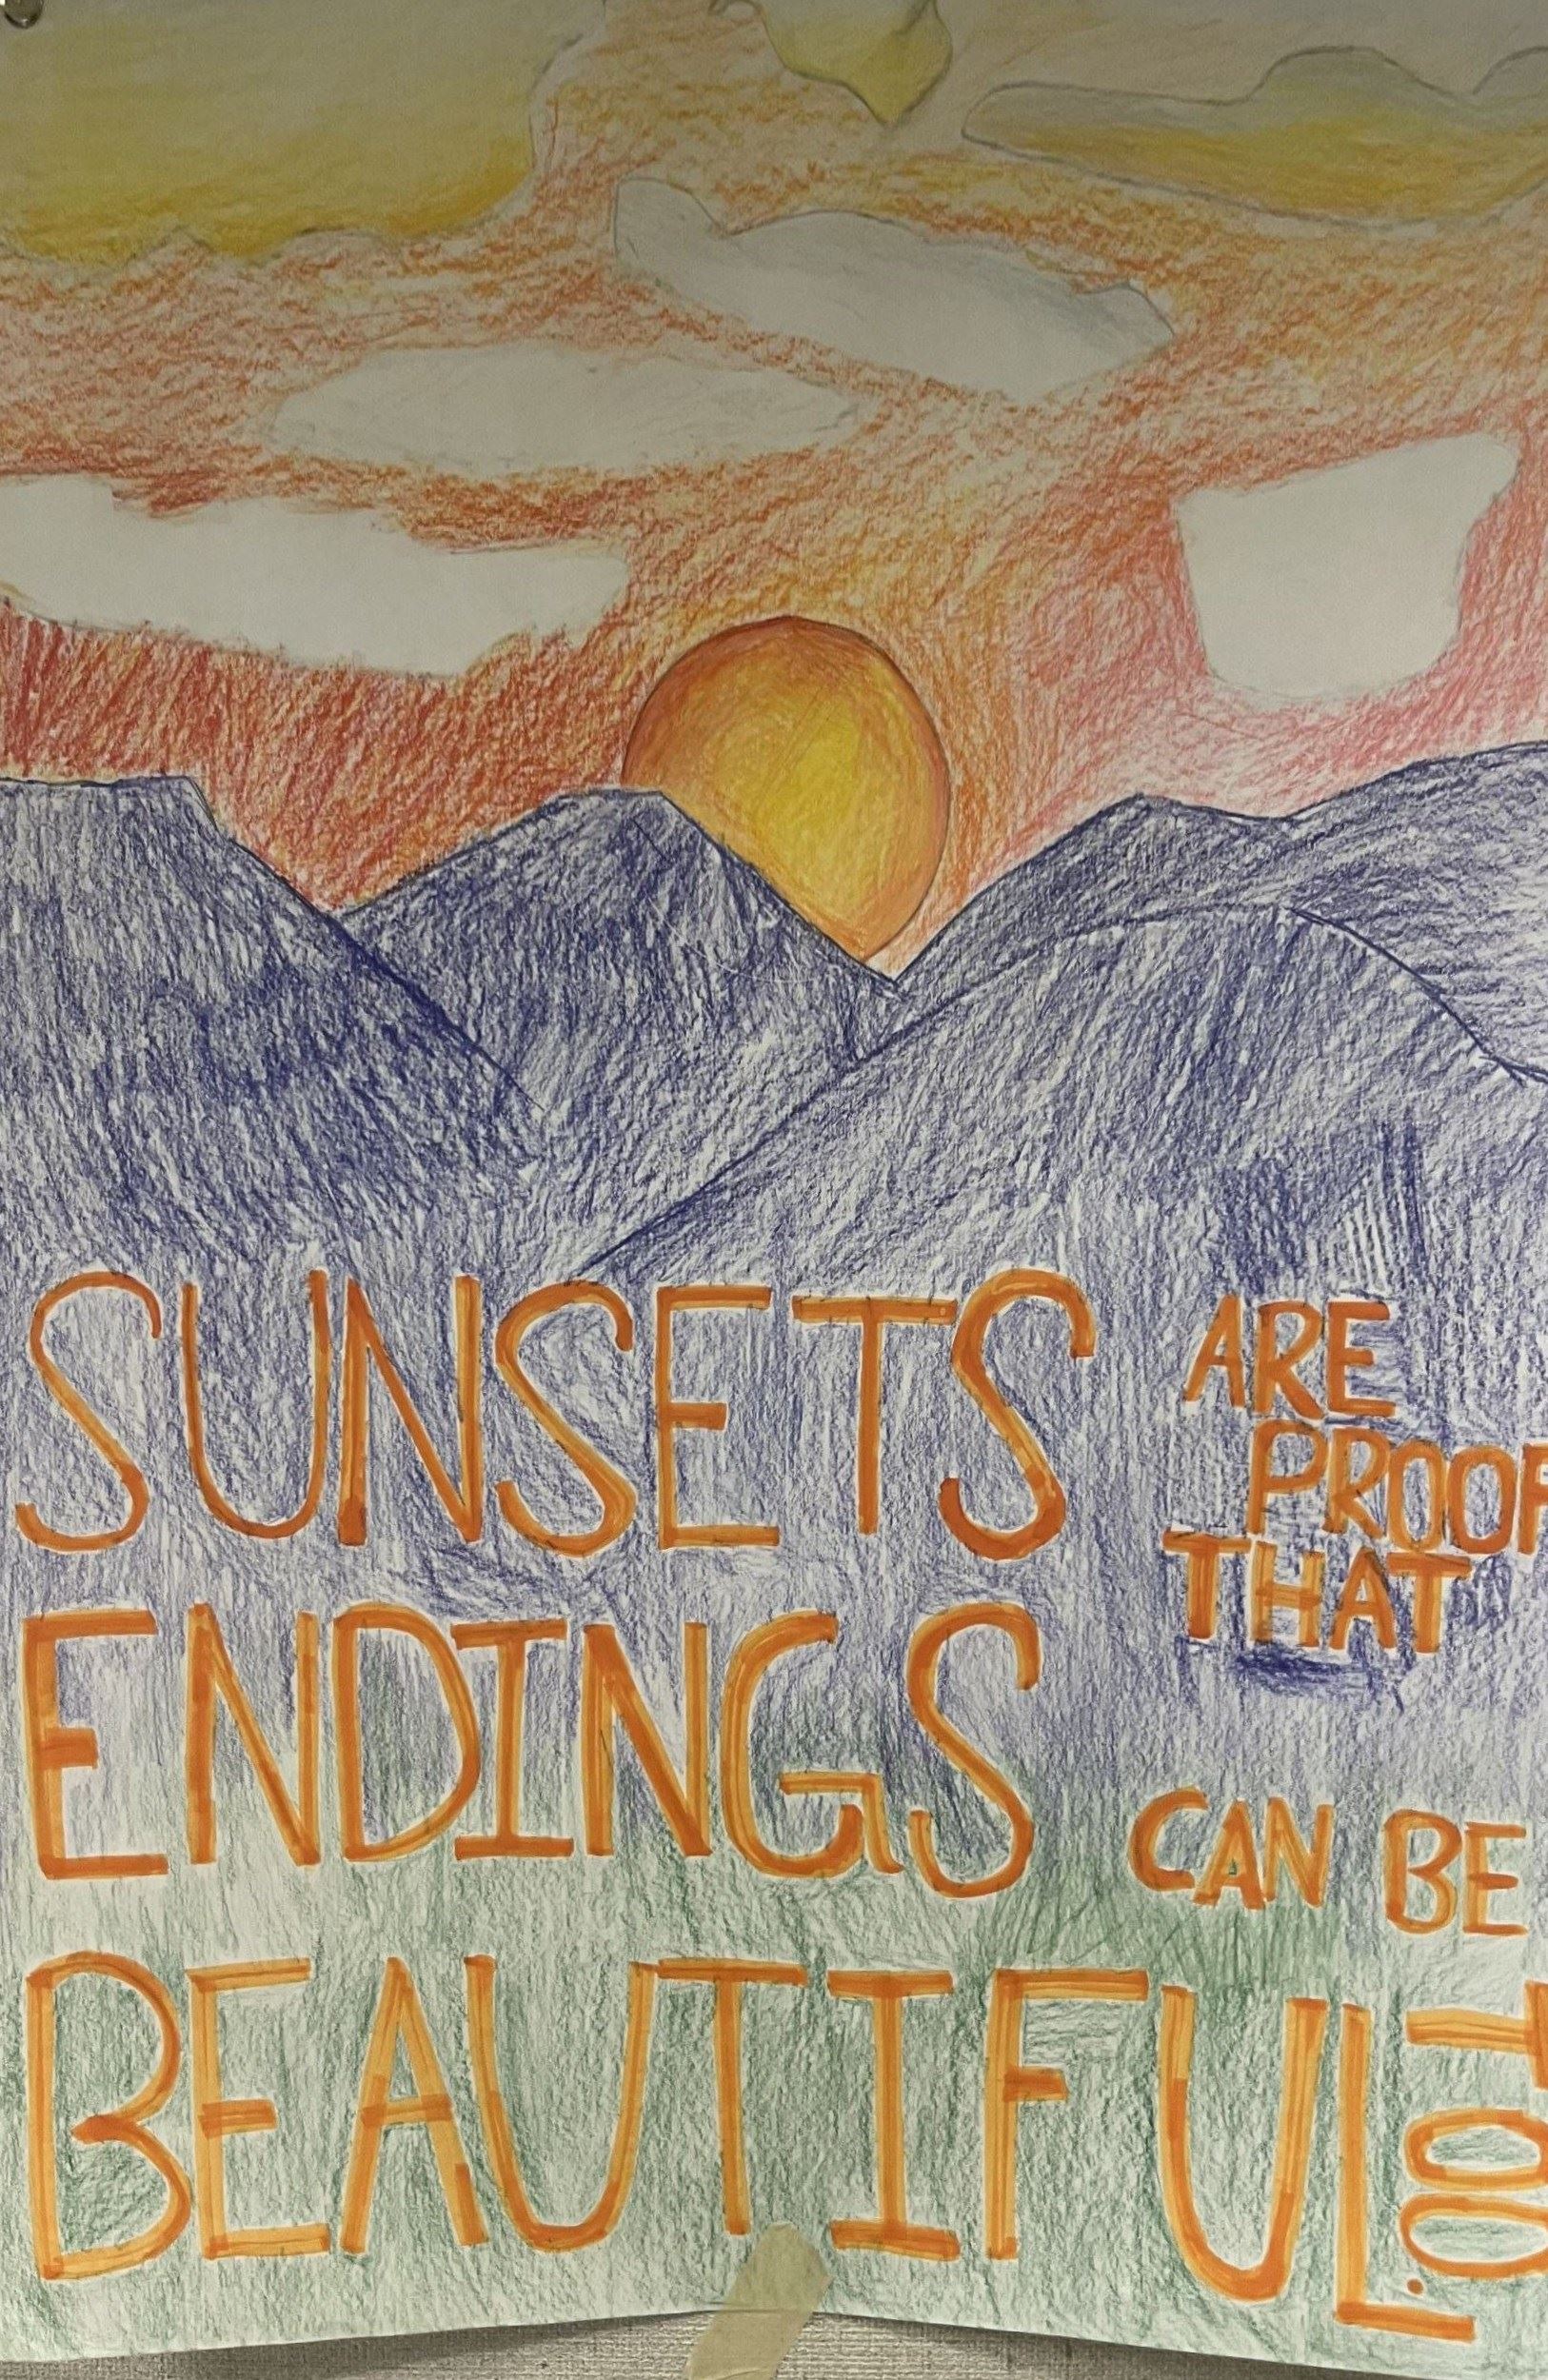 SUNSETS ARE
PROOF
THAT
ENDINGS
CAN BE
BEAUTIFUL
TOO.